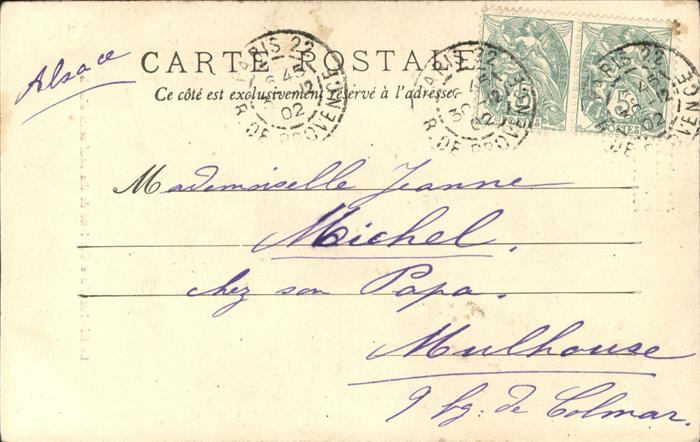 Alsace
CARTE POSTALE
Ce côté est exclusivement réservé à l'adresse
PARIS 22
R. DE PROVENCE
02
PARIS 22
02
R. DE PROVENCE
5
POSTES
02
Mademoiselle Jeanne
Michel.
chez son Papa.
Mulhouse
9 fg: de Colmar.